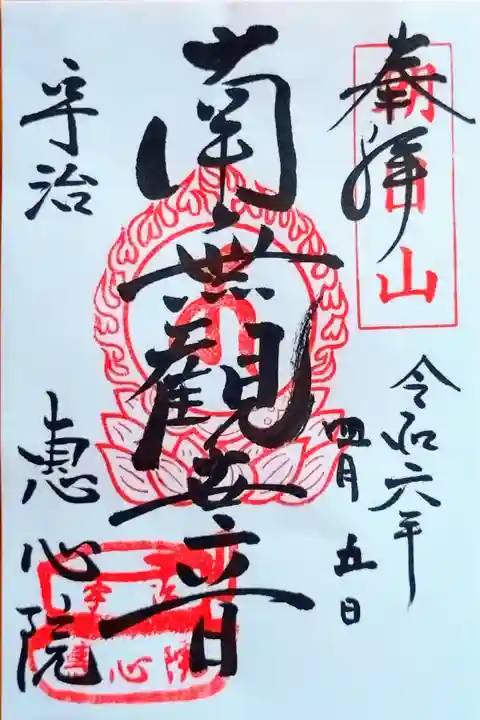 奉拝
朝日山
令和六年
四月五日
南無觀世音
宇治
恵心院
宇治
恵心院